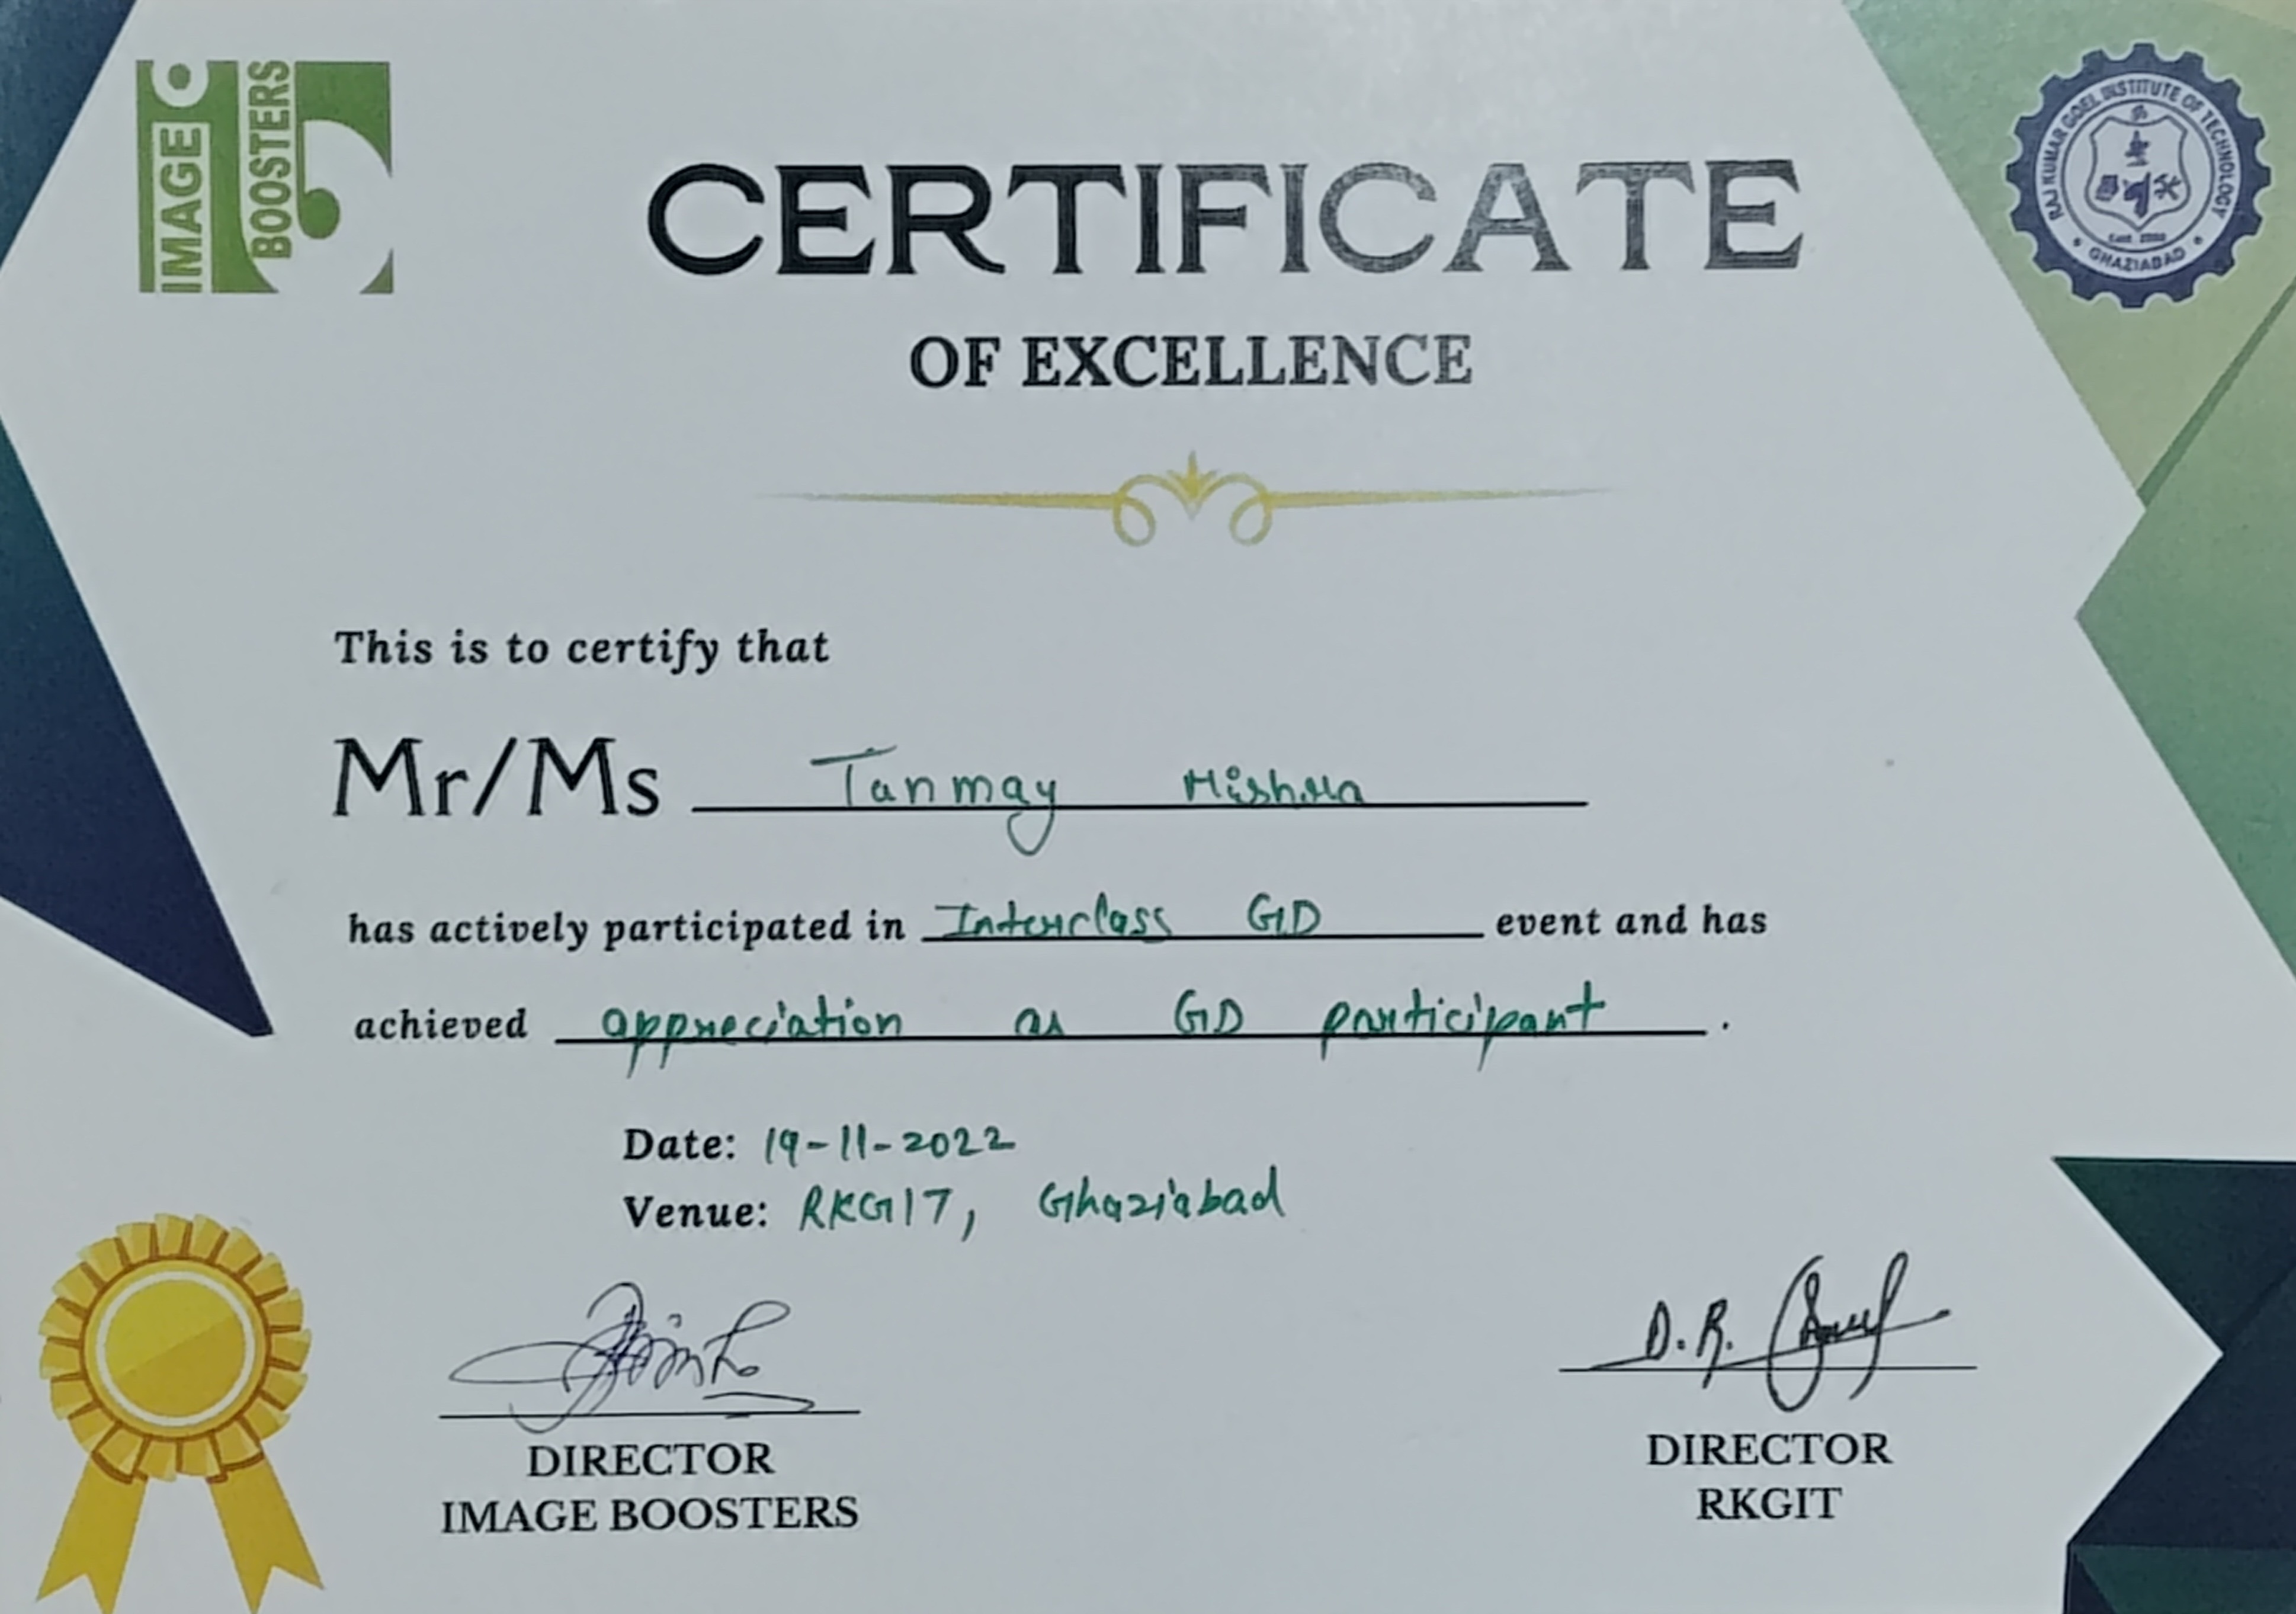 IMAGE BOOSTERS
RAJ KUMAR GOEL INSTITUTE OF TECHNOLOGY
Estd. 2000
GHAZIABAD
CERTIFICATE
OF EXCELLENCE
This is to certify that
Mr/Ms Tanmay Mishra
has actively participated in Interclass GD event and has
achieved appreciation as GD participant .
Date: 19-11-2022
Venue: RKGIT, Ghaziabad
D.R.
DIRECTOR
IMAGE BOOSTERS
DIRECTOR
RKGIT